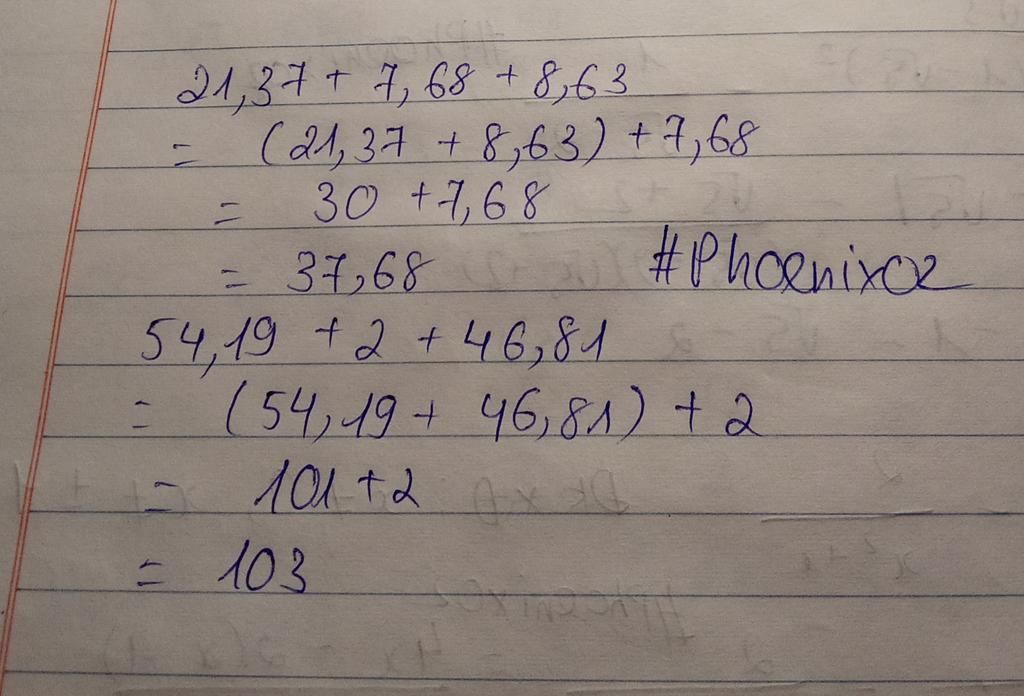 21,37 + 7,68 + 8,63
= (21,37 + 8,63) + 7,68
= 30 + 7,68
= 37,68 #Phoenix02
54,19 + 2 + 46,81
= (54,19 + 46,81) + 2
= 101 + 2
= 103